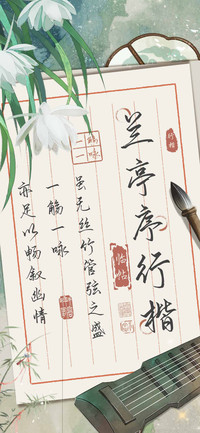 兰亭序行楷
行楷
临帖
虽无丝竹管弦之盛
一觞一咏
亦足以畅叙幽情